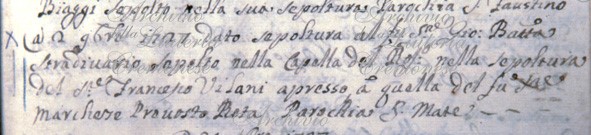 Biaggi Sepolto nella sua Sepoltura Parochia S. Faustino
X a 2 9bre 1727 dato Sepoltura al fu Sig.r Gio: Batta
Stradiuario Sepolto nella Capella del Ros.o nella Sepoltura
del Sig.r Francesco Vilani apresso a quella del fu
marcheze Provosto Reta Parochia S. Mate.o